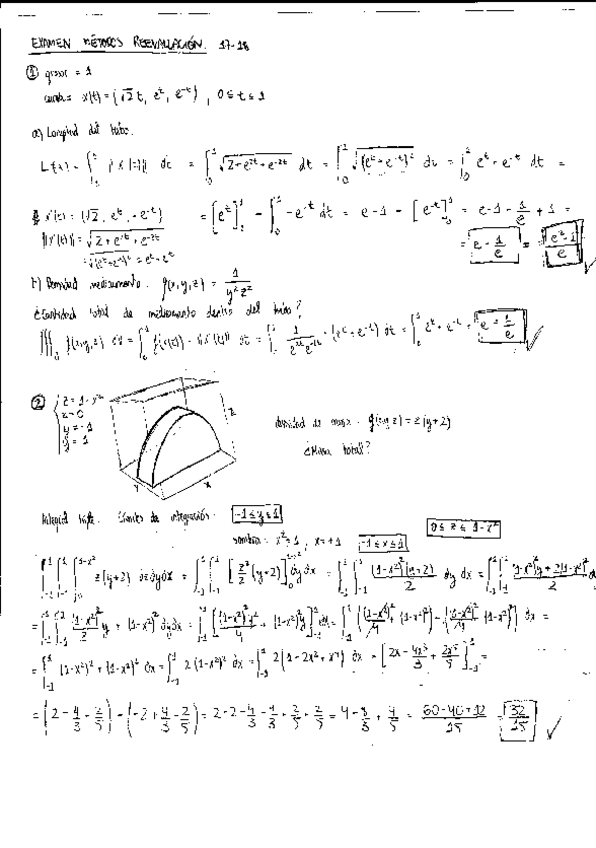 EXAMEN MÉTODOS REEVALUACIÓN. 17-18
① grosor = 1
curva x(t) = (√2 t, e^t, e^-t), 0 ≤ t ≤ 1
a) Longitud del tubo.
L(x) = ∫₀¹ ||x'(t)|| dt = ∫₀¹ √(2+e^2t+e^-2t) dt = ∫₀¹ √((e^t+e^-t)²) dt = ∫₀¹ e^t+e^-t dt =
x'(t) = (√2, e^t, -e^-t) = [e^t]₀¹ - ∫₀¹ -e^-t dt = e-1 - [e^-t]₀¹ = e-1-1/e+1 =
||x'(t)|| = √(2+e^2t+e^-2t) = e - 1/e = (e²-1)/e
= √((e^t+e^-t)²) = e^t+e^-t
Densidad medicamento. f(x,y,z) = 1/(y²z²)
¿Cantidad total de medicamento dentro del tubo?
f(x,y,z) = ∫₀¹ f(x(t)) · ||x'(t)|| dt = ∫₀¹ 1/(e^2t e^-2t) · (e^t+e^-t) dt = ∫₀¹ e^t+e^-t = e - 1/e
② z = 1-x²
z = 0
y = -1
y = 1
z
y
x
densidad de masa. f(x,y,z) = z(y+2)
¿Masa total?
Integral triple. Límites de integración: -1 ≤ y ≤ 1
0 ≤ z ≤ 1-x²
sombra: x² = 1, x = ±1 -1 ≤ x ≤ 1
∫₋₁¹ ∫₋₁¹ ∫₀^(1-x²) z(y+2) dz dy dx = ∫₋₁¹ ∫₋₁¹ [z²/2 (y+2)]₀^(1-x²) dy dx = ∫₋₁¹ ∫₋₁¹ (1-x²)²(y+2)/2 dy dx =
= ∫₋₁¹ ∫₋₁¹ (1-x²)²y/2 + (1-x²)² dy dx = ∫₋₁¹ [(1-x²)²y²/4 + (1-x²)²y]₋₁¹ dx =
= ∫₋₁¹ (1-x²)² + (1-x²)² dx = ∫₋₁¹ 2(1-x²)² dx = ∫₋₁¹ 2(1-2x²+x⁴) dx = [2x - 4x³/3 + 2x⁵/5]₋₁¹ =
= (2 - 4/3 + 2/5) - (-2 + 4/3 - 2/5) = 2+2-4/3-4/3+2/5+2/5 = 4 - 8/3 + 4/5 = (60-40+12)/15 = 32/15